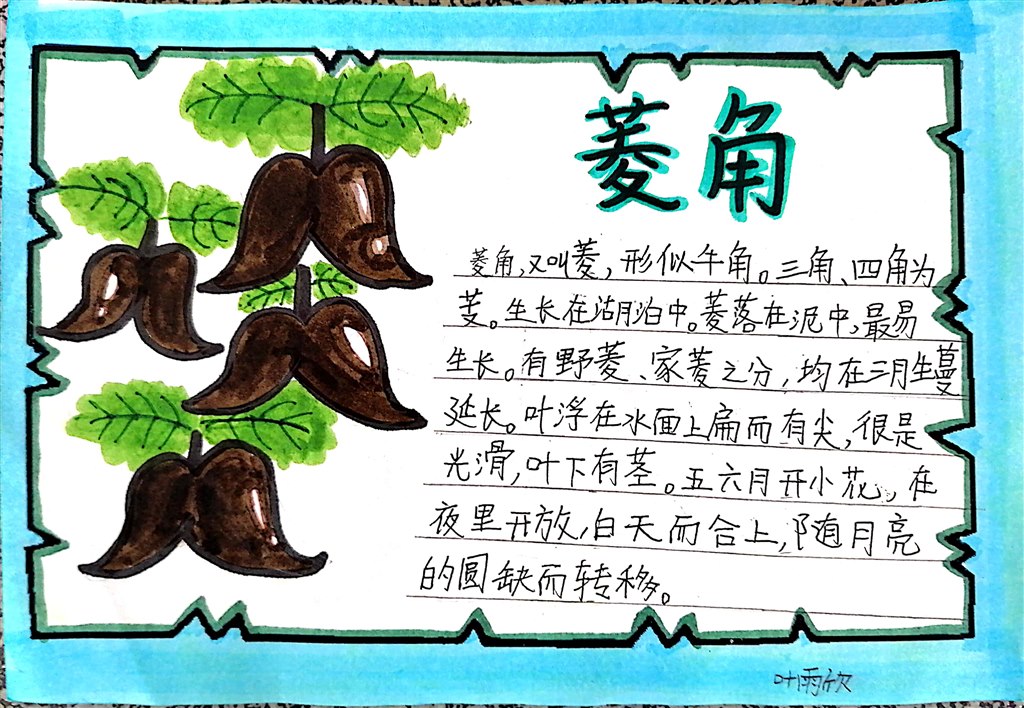 菱角
菱角,又叫菱,形似牛角。三角、四角为
芰。生长在湖泊中。菱落在泥中,最易
生长。有野菱、家菱之分,均在三月生蔓
延长。叶浮在水面上扁而有尖,很是
光滑,叶下有茎。五六月开小花,在
夜里开放,白天而合上,随月亮
的圆缺而转移。
叶雨欣